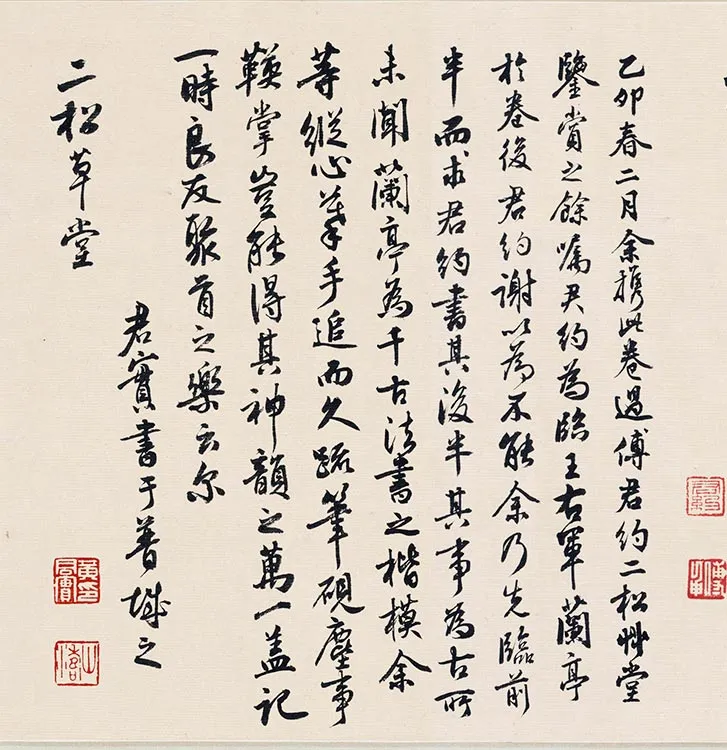 乙卯春二月余携此卷過傅君約二松艸堂
鑒賞之餘嘱君約為臨王右軍蘭亭
於卷後君約謝以為不能余乃先臨前
半而求君約書其後半其事為古所
未聞蘭亭為千古法書之楷模余
等縱心摹手追而久疏筆硯塵事
鞅掌豈能得其神韻之萬一蓋記
一時良友聚首之樂云尔
君實書于蓉城之
二松草堂
黃君實印